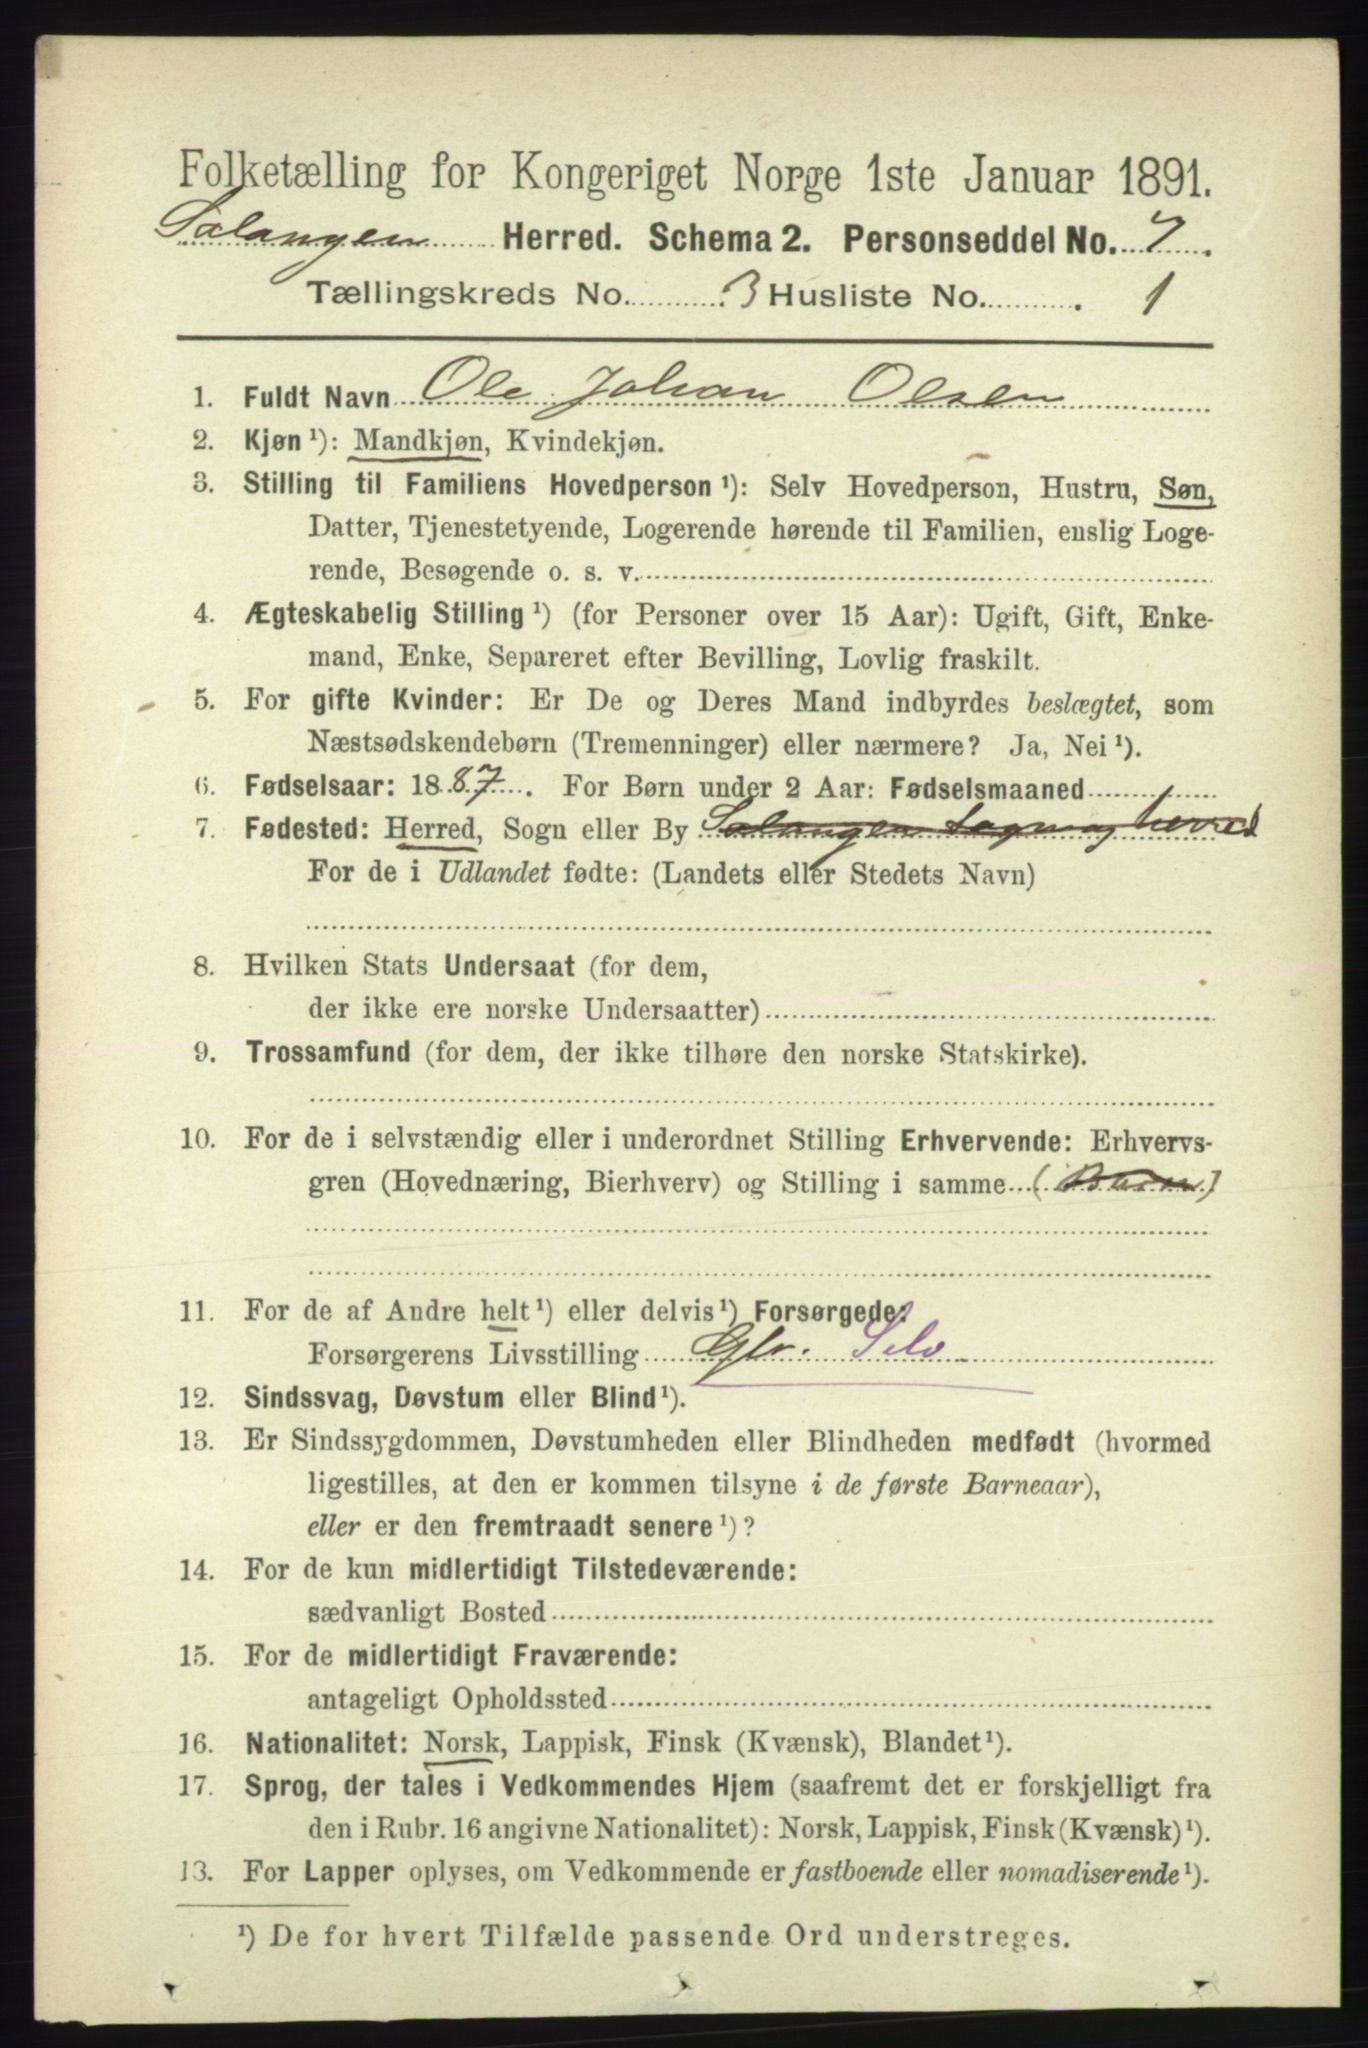 Folketælling for Kongeriget Norge 1ste Januar 1891.
Salangen Herred. Schema 2. Personseddel No. 7.
Tællingskreds No. 3 Husliste No. 1
1. Fuldt Navn Ole Johan Olsen
2. Kjøn ¹): Mandkjøn, Kvindekjøn.
3. Stilling til Familiens Hovedperson ¹): Selv Hovedperson, Hustru, Søn,
Datter, Tjenestetyende, Logerende hørende til Familien, enslig Loge-
rende, Besøgende o. s. v.
4. Ægteskabelig Stilling ¹) (for Personer over 15 Aar): Ugift, Gift, Enke-
mand, Enke, Separeret efter Bevilling, Lovlig fraskilt.
5. For gifte Kvinder: Er De og Deres Mand indbyrdes beslægtet, som
Næstsødskendebørn (Tremenninger) eller nærmere? Ja, Nei ¹).
6. Fødselsaar: 1887. For Børn under 2 Aar: Fødselsmaaned
7. Fødested: Herred, Sogn eller By Salangen Sogn og herred
For de i Udlandet fødte: (Landets eller Stedets Navn)
8. Hvilken Stats Undersaat (for dem,
der ikke ere norske Undersaatter)
9. Trossamfund (for dem, der ikke tilhøre den norske Statskirke).
10. For de i selvstændig eller i underordnet Stilling Erhvervende: Erhvervs-
gren (Hovednæring, Bierhverv) og Stilling i samme (Barn)
11. For de af Andre helt ¹) eller delvis ¹) Forsørgede:
Forsørgerens Livsstilling Glv. Selv
12. Sindssvag, Døvstum eller Blind ¹).
13. Er Sindssygdommen, Døvstumheden eller Blindheden medfødt (hvormed
ligestilles, at den er kommen tilsyne i de første Barneaar),
eller er den fremtraadt senere ¹)?
14. For de kun midlertidigt Tilstedeværende:
sædvanligt Bosted
15. For de midlertidigt Fraværende:
antageligt Opholdssted
16. Nationalitet: Norsk, Lappisk, Finsk (Kvænsk), Blandet ¹).
17. Sprog, der tales i Vedkommendes Hjem (saafremt det er forskjelligt fra
den i Rubr. 16 angivne Nationalitet): Norsk, Lappisk, Finsk (Kvænsk) ¹).
13. For Lapper oplyses, om Vedkommende er fastboende eller nomadiserende ¹).
¹) De for hvert Tilfælde passende Ord understreges.